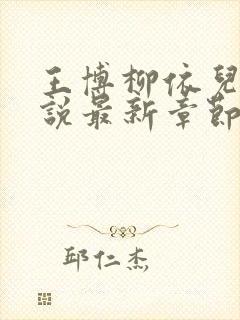 王博柳依兒
說最新章節
邱仁杰